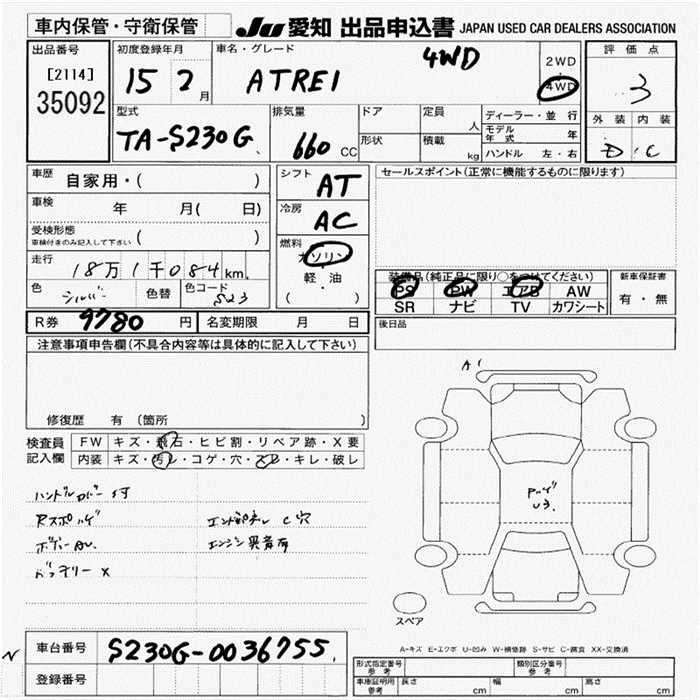 車内保管・守衛保管
JU 愛知 出品申込書 JAPAN USED CAR DEALERS ASSOCIATION
出品番号
[2114]
35092
初度登録年月
15 2 月
車名・グレード
ATREI 4WD
2WD
4WD
評価点
3
外装 内装
D C
型式
TA-S230G
排気量
660 CC
ドア
形状
定員
人
積載
kg
ディーラー・並行
モデル年式 年
ハンドル 左・右
車歴 自家用・( )
車検 年 月( 日)
受検形態
車検付きのみ記入して下さい ( )
走行 18万1千084km.
色 シルバー 色替 色コード S23
シフト AT
冷房 AC
燃料
ガソリン
軽・油
( )
セールスポイント(正常に機能するものに限ります)
装備品(純正品に限り○をつけてください)
PS PW エアB AW
SR ナビ TV カワシート
新車保証書
有・無
R券 9780 円 名変期限 月 日
後日品
注意事項申告欄(不具合内容等は具体的に記入して下さい)
修復歴 有 (箇所 )
検査員
記入欄
FW キズ・飛石・ヒビ割・リペア跡・X要
内装 キズ・汚レ・コゲ・穴・スレ・キレ・破レ
ハンドルカバー付
エンジン異音有
バッテリー X
A1
U3.
スペア
A-キズ E-エクボ U-凹み W-補修跡 S-サビ C-腐食 XX-交換済
車台番号 S230G-0036755
登録番号
形式指定番号
参考
類別区分番号
参考
車庫証明用
参考
長さ cm 幅 cm 高さ cm